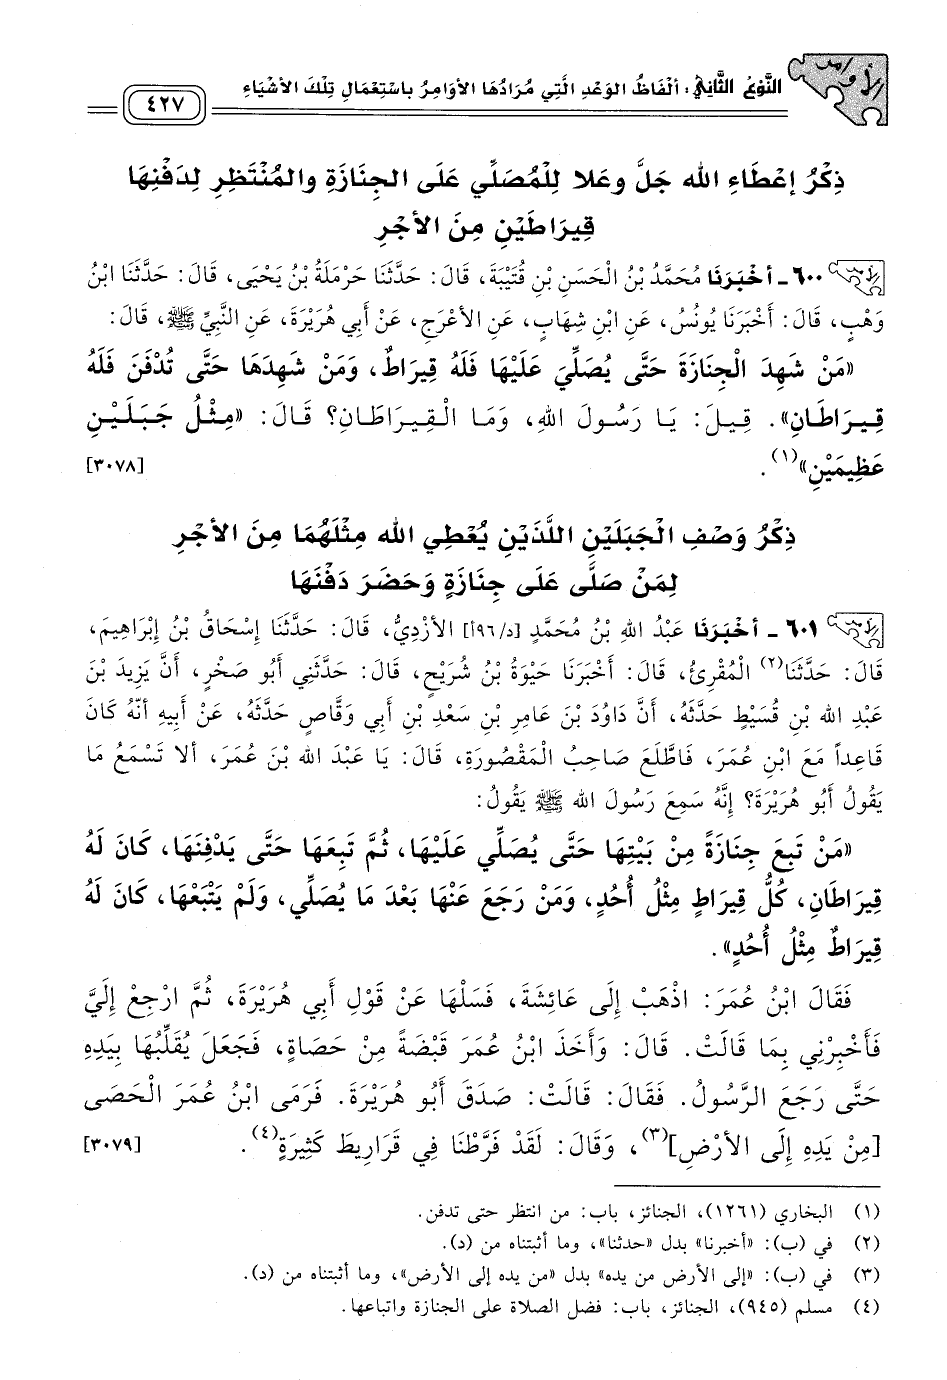 الأوامر
النَّوْعُ الثَّانِي: ألْفَاظُ الوَعْدِ الَّتِي مُرَادُهَا الأوَامِرُ بِاسْتِعْمَالِ تِلْكَ الأشْيَاءِ
٤٢٧
ذِكْرُ إعْطَاءِ الله جَلَّ وعَلا لِلْمُصَلِّي عَلَى الجِنَازَةِ والمُنْتَظِرِ لِدَفْنِهَا
قِيرَاطَيْنِ مِنَ الأجْرِ
٦٠٠ - أخْبَرَنَا مُحَمَّدُ بْنُ الْحَسَنِ بْنِ قُتَيْبَةَ، قَالَ: حَدَّثَنَا حَرْمَلَةُ بْنُ يَحْيَى، قَالَ: حَدَّثَنَا ابْنُ
وَهْبٍ، قَالَ: أَخْبَرَنَا يُونُسُ، عَنِ ابْنِ شِهَابٍ، عَنِ الأَعْرَجِ، عَنْ أَبِي هُرَيْرَةَ، عَنِ النَّبِيِّ ﷺ، قَالَ:
«مَنْ شَهِدَ الْجِنَازَةَ حَتَّى يُصَلِّيَ عَلَيْهَا فَلَهُ قِيرَاطٌ، وَمَنْ شَهِدَهَا حَتَّى تُدْفَنَ فَلَهُ
قِيرَاطَانِ». قِيلَ: يَا رَسُولَ اللهِ، وَمَا الْقِيرَاطَانِ؟ قَالَ: «مِثْلُ جَبَلَيْنِ
عَظِيمَيْنِ»(١). [٣٠٧٨]
ذِكْرُ وَصْفِ الْجَبَلَيْنِ اللَّذَيْنِ يُعْطِي الله مِثْلَهُمَا مِنَ الأجْرِ
لِمَنْ صَلَّى عَلَى جِنَازَةٍ وَحَضَرَ دَفْنَهَا
٦٠١ - أخْبَرَنَا عَبْدُ اللهِ بْنُ مُحَمَّدٍ [د/٩٦أ] الأزْدِيُّ، قَالَ: حَدَّثَنَا إِسْحَاقُ بْنُ إِبْرَاهِيمَ،
قَالَ: حَدَّثَنَا(٢) الْمُقْرِئُ، قَالَ: أَخْبَرَنَا حَيْوَةُ بْنُ شُرَيْحٍ، قَالَ: حَدَّثَنِي أَبُو صَخْرٍ، أَنَّ يَزِيدَ بْنَ
عَبْدِ الله بْنِ قُسَيْطٍ حَدَّثَهُ، أَنَّ دَاوُدَ بْنَ عَامِرِ بْنِ سَعْدِ بْنِ أَبِي وَقَّاصٍ حَدَّثَهُ، عَنْ أَبِيهِ أنَّهُ كَانَ
قَاعِداً مَعَ ابْنِ عُمَرَ، فَاطَّلَعَ صَاحِبُ الْمَقْصُورَةِ، قَالَ: يَا عَبْدَ الله بْنَ عُمَرَ، ألا تَسْمَعُ مَا
يَقُولُ أَبُو هُرَيْرَةَ؟ إِنَّهُ سَمِعَ رَسُولَ الله ﷺ يَقُولُ:
«مَنْ تَبِعَ جِنَازَةً مِنْ بَيْتِهَا حَتَّى يُصَلِّي عَلَيْهَا، ثُمَّ تَبِعَهَا حَتَّى يَدْفِنَهَا، كَانَ لَهُ
قِيرَاطَانِ، كُلُّ قِيرَاطٍ مِثْلُ أُحُدٍ، وَمَنْ رَجَعَ عَنْهَا بَعْدَ مَا يُصَلِّي، وَلَمْ يَتْبَعْهَا، كَانَ لَهُ
قِيرَاطٌ مِثْلُ أُحُدٍ».
فَقَالَ ابْنُ عُمَرَ: اذْهَبْ إِلَى عَائِشَةَ، فَسَلْهَا عَنْ قَوْلِ أَبِي هُرَيْرَةَ، ثُمَّ ارْجِعْ إِلَيَّ
فَأَخْبِرْنِي بِمَا قَالَتْ. قَالَ: وَأَخَذَ ابْنُ عُمَرَ قَبْضَةً مِنْ حَصَاةٍ، فَجَعَلَ يُقَلِّبُهَا بِيَدِهِ
حَتَّى رَجَعَ الرَّسُولُ. فَقَالَ: قَالَتْ: صَدَقَ أَبُو هُرَيْرَةَ. فَرَمَى ابْنُ عُمَرَ الْحَصَى
[مِنْ يَدِهِ إِلَى الأَرْضِ](٣)، وَقَالَ: لَقَدْ فَرَّطْنَا فِي قَرَارِيطَ كَثِيرَةٍ(٤). [٣٠٧٩]
(١) البخاري (١٢٦١)، الجنائز، باب: من انتظر حتى تدفن.
(٢) في (ب): «أخبرنا» بدل «حدثنا»، وما أثبتناه من (د).
(٣) في (ب): «إلى الأرض من يده» بدل «من يده إلى الأرض»، وما أثبتناه من (د).
(٤) مسلم (٩٤٥)، الجنائز، باب: فضل الصلاة على الجنازة واتباعها.